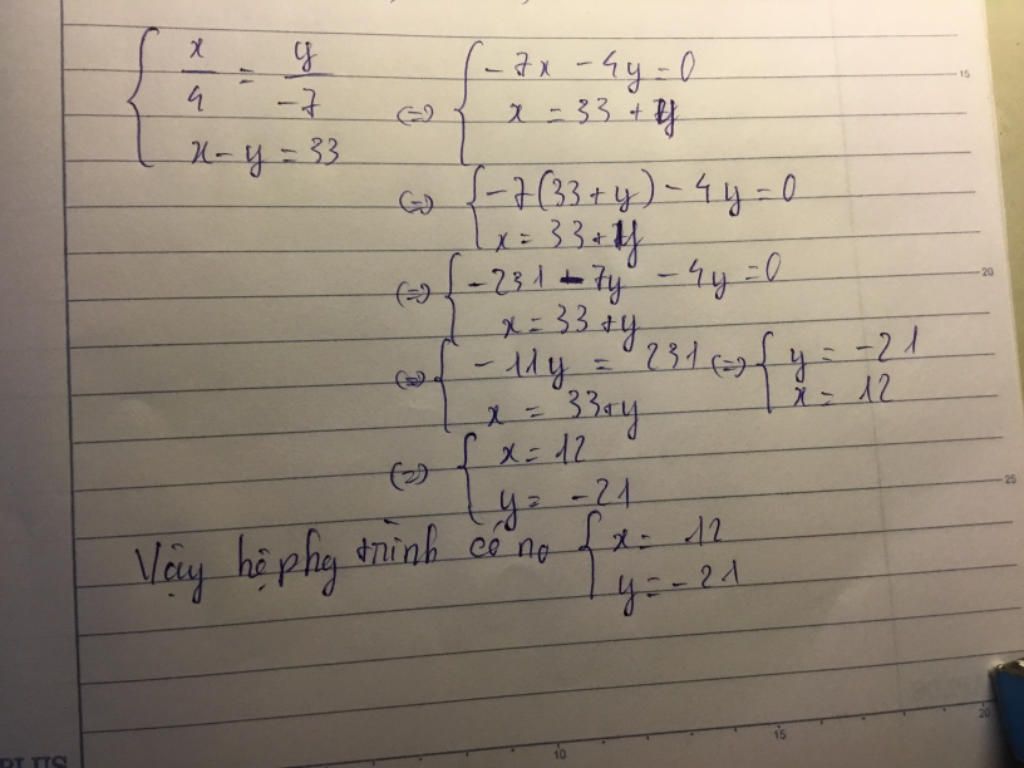 { x/4 = y/-7
x - y = 33
(=) { -7x - 4y = 0
x = 33 + y
(=) { -7(33+y) - 4y = 0
x = 33 + y
(=) { -231 - 7y - 4y = 0
x = 33 + y
(=) { -11y = 231
x = 33+y
(=) { y = -21
x = 12
(=) { x = 12
y = -21
Vậy hệ phg trình có no { x = 12
y = -21
15
20
25
10
15
20
PLUS